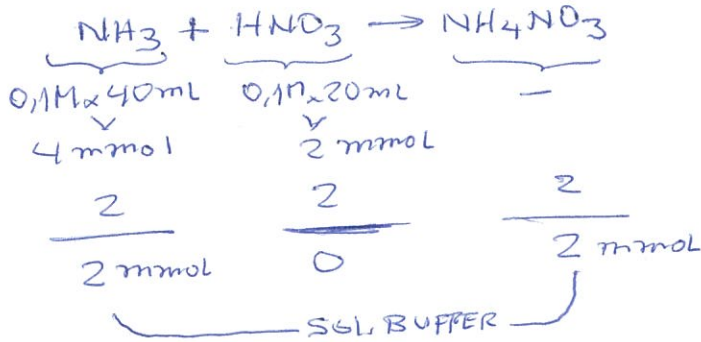 NH3 + HNO3 → NH4NO3
0,1M x 40mL 0,1M x 20mL —
4 mmol 2 mmol
2 2 2
2 mmol 0 2 mmol
SOL BUFFER